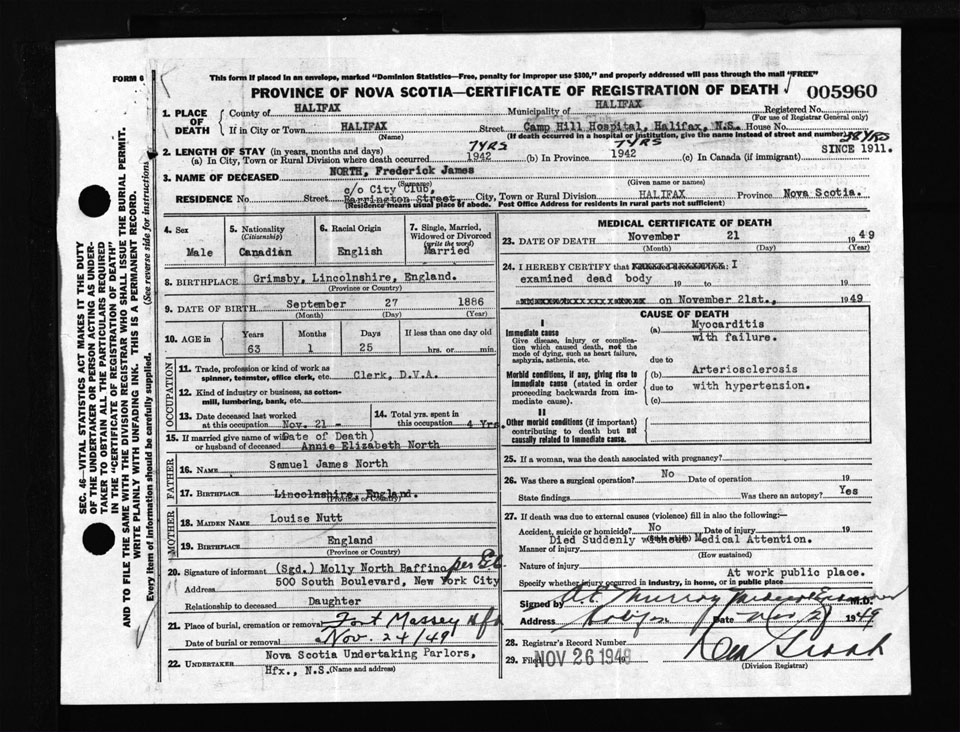 FORM 6
This form if placed in an envelope, marked "Dominion Statistics—Free, penalty for improper use $300," and properly addressed will pass through the mail "FREE"
PROVINCE OF NOVA SCOTIA—CERTIFICATE OF REGISTRATION OF DEATH
005960
1. PLACE OF DEATH
County of HALIFAX Municipality of HALIFAX Registered No.
(For use of Registrar General only)
If in City or Town HALIFAX Street Camp Hill Hospital, Halifax, N.S. House No.
(Name) (If death occurred in a hospital or institution, give the name instead of street and number)
38 YRS
2. LENGTH OF STAY (in years, months and days) 7YRS 7YRS SINCE 1911.
(a) In City, Town or Rural Division where death occurred 1942 (b) In Province 1942 (c) In Canada (if immigrant)
3. NAME OF DECEASED NORTH, Frederick James
(Surname) (Given names or name)
c/o City Club,
RESIDENCE No. Street Barrington Street, City, Town or Rural Division HALIFAX Province Nova Scotia.
(Residence means usual place of abode. Post Office Address for residents in rural parts not sufficient)
4. Sex Male
5. Nationality (Citizenship) Canadian
6. Racial Origin English
7. Single, Married, Widowed or Divorced (write the word) Married
8. BIRTHPLACE Grimsby, Lincolnshire, England.
(Province or Country)
9. DATE OF BIRTH September 27 1886
(Month) (Day) (Year)
10. AGE in Years Months Days If less than one day old
63 1 25 hrs. or min.
OCCUPATION
11. Trade, profession or kind of work as spinner, teamster, office clerk, etc. Clerk, D.V.A.
12. Kind of industry or business, as cotton-mill, lumbering, bank, etc.
13. Date deceased last worked at this occupation Nov. 21 -
14. Total yrs. spent in this occupation 4 Yrs.
Date of Death)
15. If married give name of wife or husband of deceased Annie Elizabeth North
FATHER
16. NAME Samuel James North
17. BIRTHPLACE Lincolnshire, England.
(Province or Country)
MOTHER
18. MAIDEN NAME Louise Nutt
19. BIRTHPLACE England
(Province or Country)
20. Signature of informant (Sgd.) Molly North Baffino per
Address 500 South Boulevard, New York City
Relationship to deceased Daughter
21. Place of burial, cremation or removal Fort Massey Hfx
Date of burial or removal Nov. 24/49
22. UNDERTAKER Nova Scotia Undertaking Parlors,
Hfx., N.S. (Name and address)
MEDICAL CERTIFICATE OF DEATH
23. DATE OF DEATH November 21 1949
(Month) (Day) (Year)
24. I HEREBY CERTIFY that I
examined dead body 19 to 19
on November 21st., 1949
CAUSE OF DEATH
I
Immediate cause
Give disease, injury or complication which caused death, not the mode of dying, such as heart failure, asphyxia, asthenia, etc.
(a) Myocarditis
with failure.
due to
Morbid conditions, if any, giving rise to immediate cause (stated in order proceeding backwards from immediate cause).
(b) Arteriosclerosis
due to with hypertension.
(c)
II
Other morbid conditions (if important) contributing to death but not causally related to immediate cause.
25. If a woman, was the death associated with pregnancy?
26. Was there a surgical operation? No Date of operation 19
State findings Was there an autopsy? Yes
27. If death was due to external causes (violence) fill in also the following:—
Accident, suicide or homicide? No Date of injury 19
Died Suddenly without Medical Attention.
Manner of injury
(How sustained)
Nature of injury
At work public place.
Specify whether injury occurred in industry, in home, or in public place
Signed by Murray M.D.
Address Halifax Date 1949
28. Registrar's Record Number
29. Filed NOV 26 194
(Division Registrar)
SEC. 46—VITAL STATISTICS ACT MAKES IT THE DUTY
OF THE UNDERTAKER OR PERSON ACTING AS UNDER-
TAKER TO OBTAIN ALL THE PARTICULARS REQUIRED
IN THE "CERTIFICATE OF REGISTRATION OF DEATH"
AND TO FILE THE SAME WITH THE DIVISION REGISTRAR WHO SHALL ISSUE THE BURIAL PERMIT.
WRITE PLAINLY WITH UNFADING INK. THIS IS A PERMANENT RECORD.
Every item of information should be carefully supplied. (See reverse side for instructions)